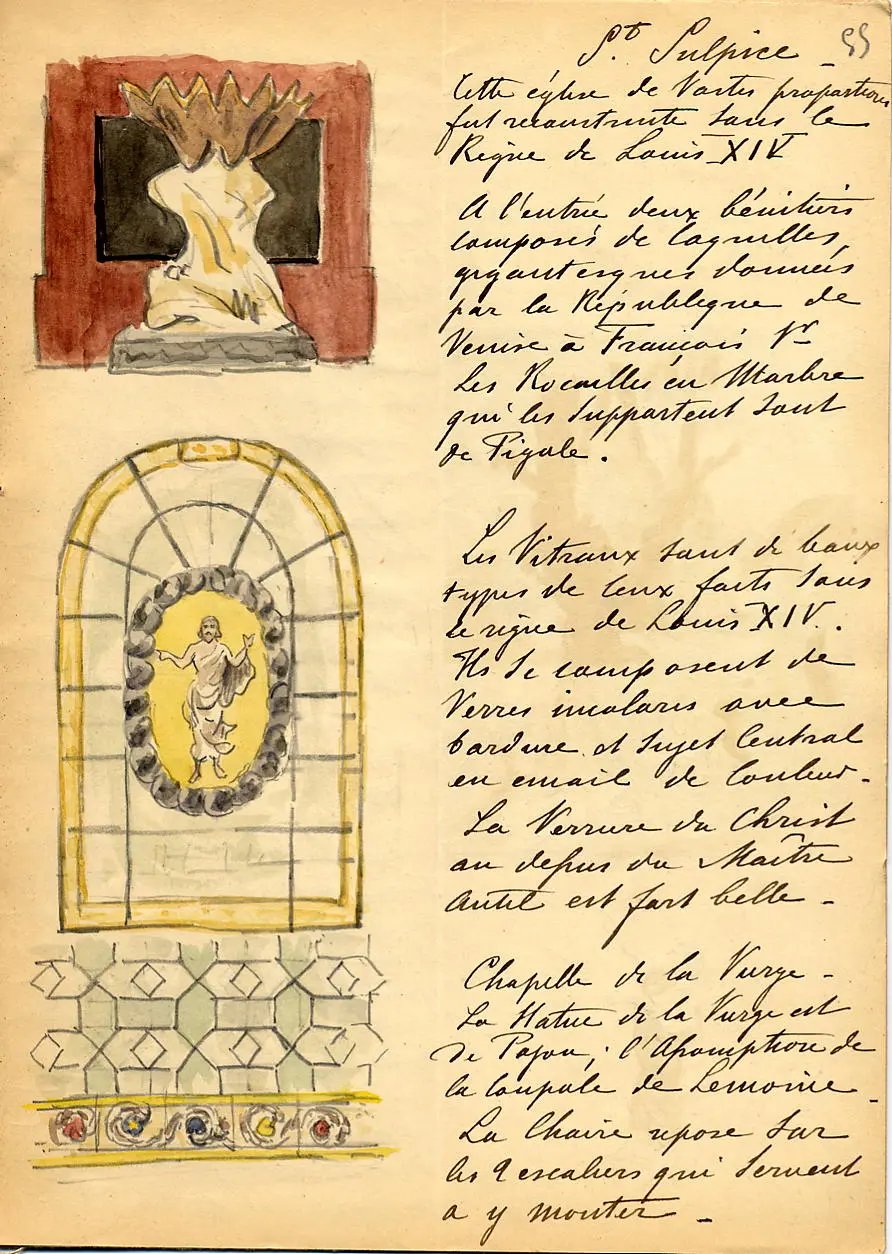 St. Sulpice _ 55
Cette église de Vastes proportions
fut reconstruite sous le
Règne de Louis XIV
A l'entrée deux bénitiers
composés de Coquilles
gigantesques données
par la République de
Venise à François 1er
Les Rocailles en Marbre
qui les Supportent sont
de Pigale.
Les Vitraux sont de beaux
types de ceux faits sous
le règne de Louis XIV.
Ils Se composent de
Verres incolores avec
bordure et Sujet Central
en email de Couleur.
La Verrure du Christ
au depus du Maître
Autel est fort belle -
Chapelle de la Vierge -
La Statue de la Vierge est
de Pajou; l'Assomption de
la Coupole de Lemoine -
La Chaire repose sur
les 2 escaliers qui servent
a y monter _